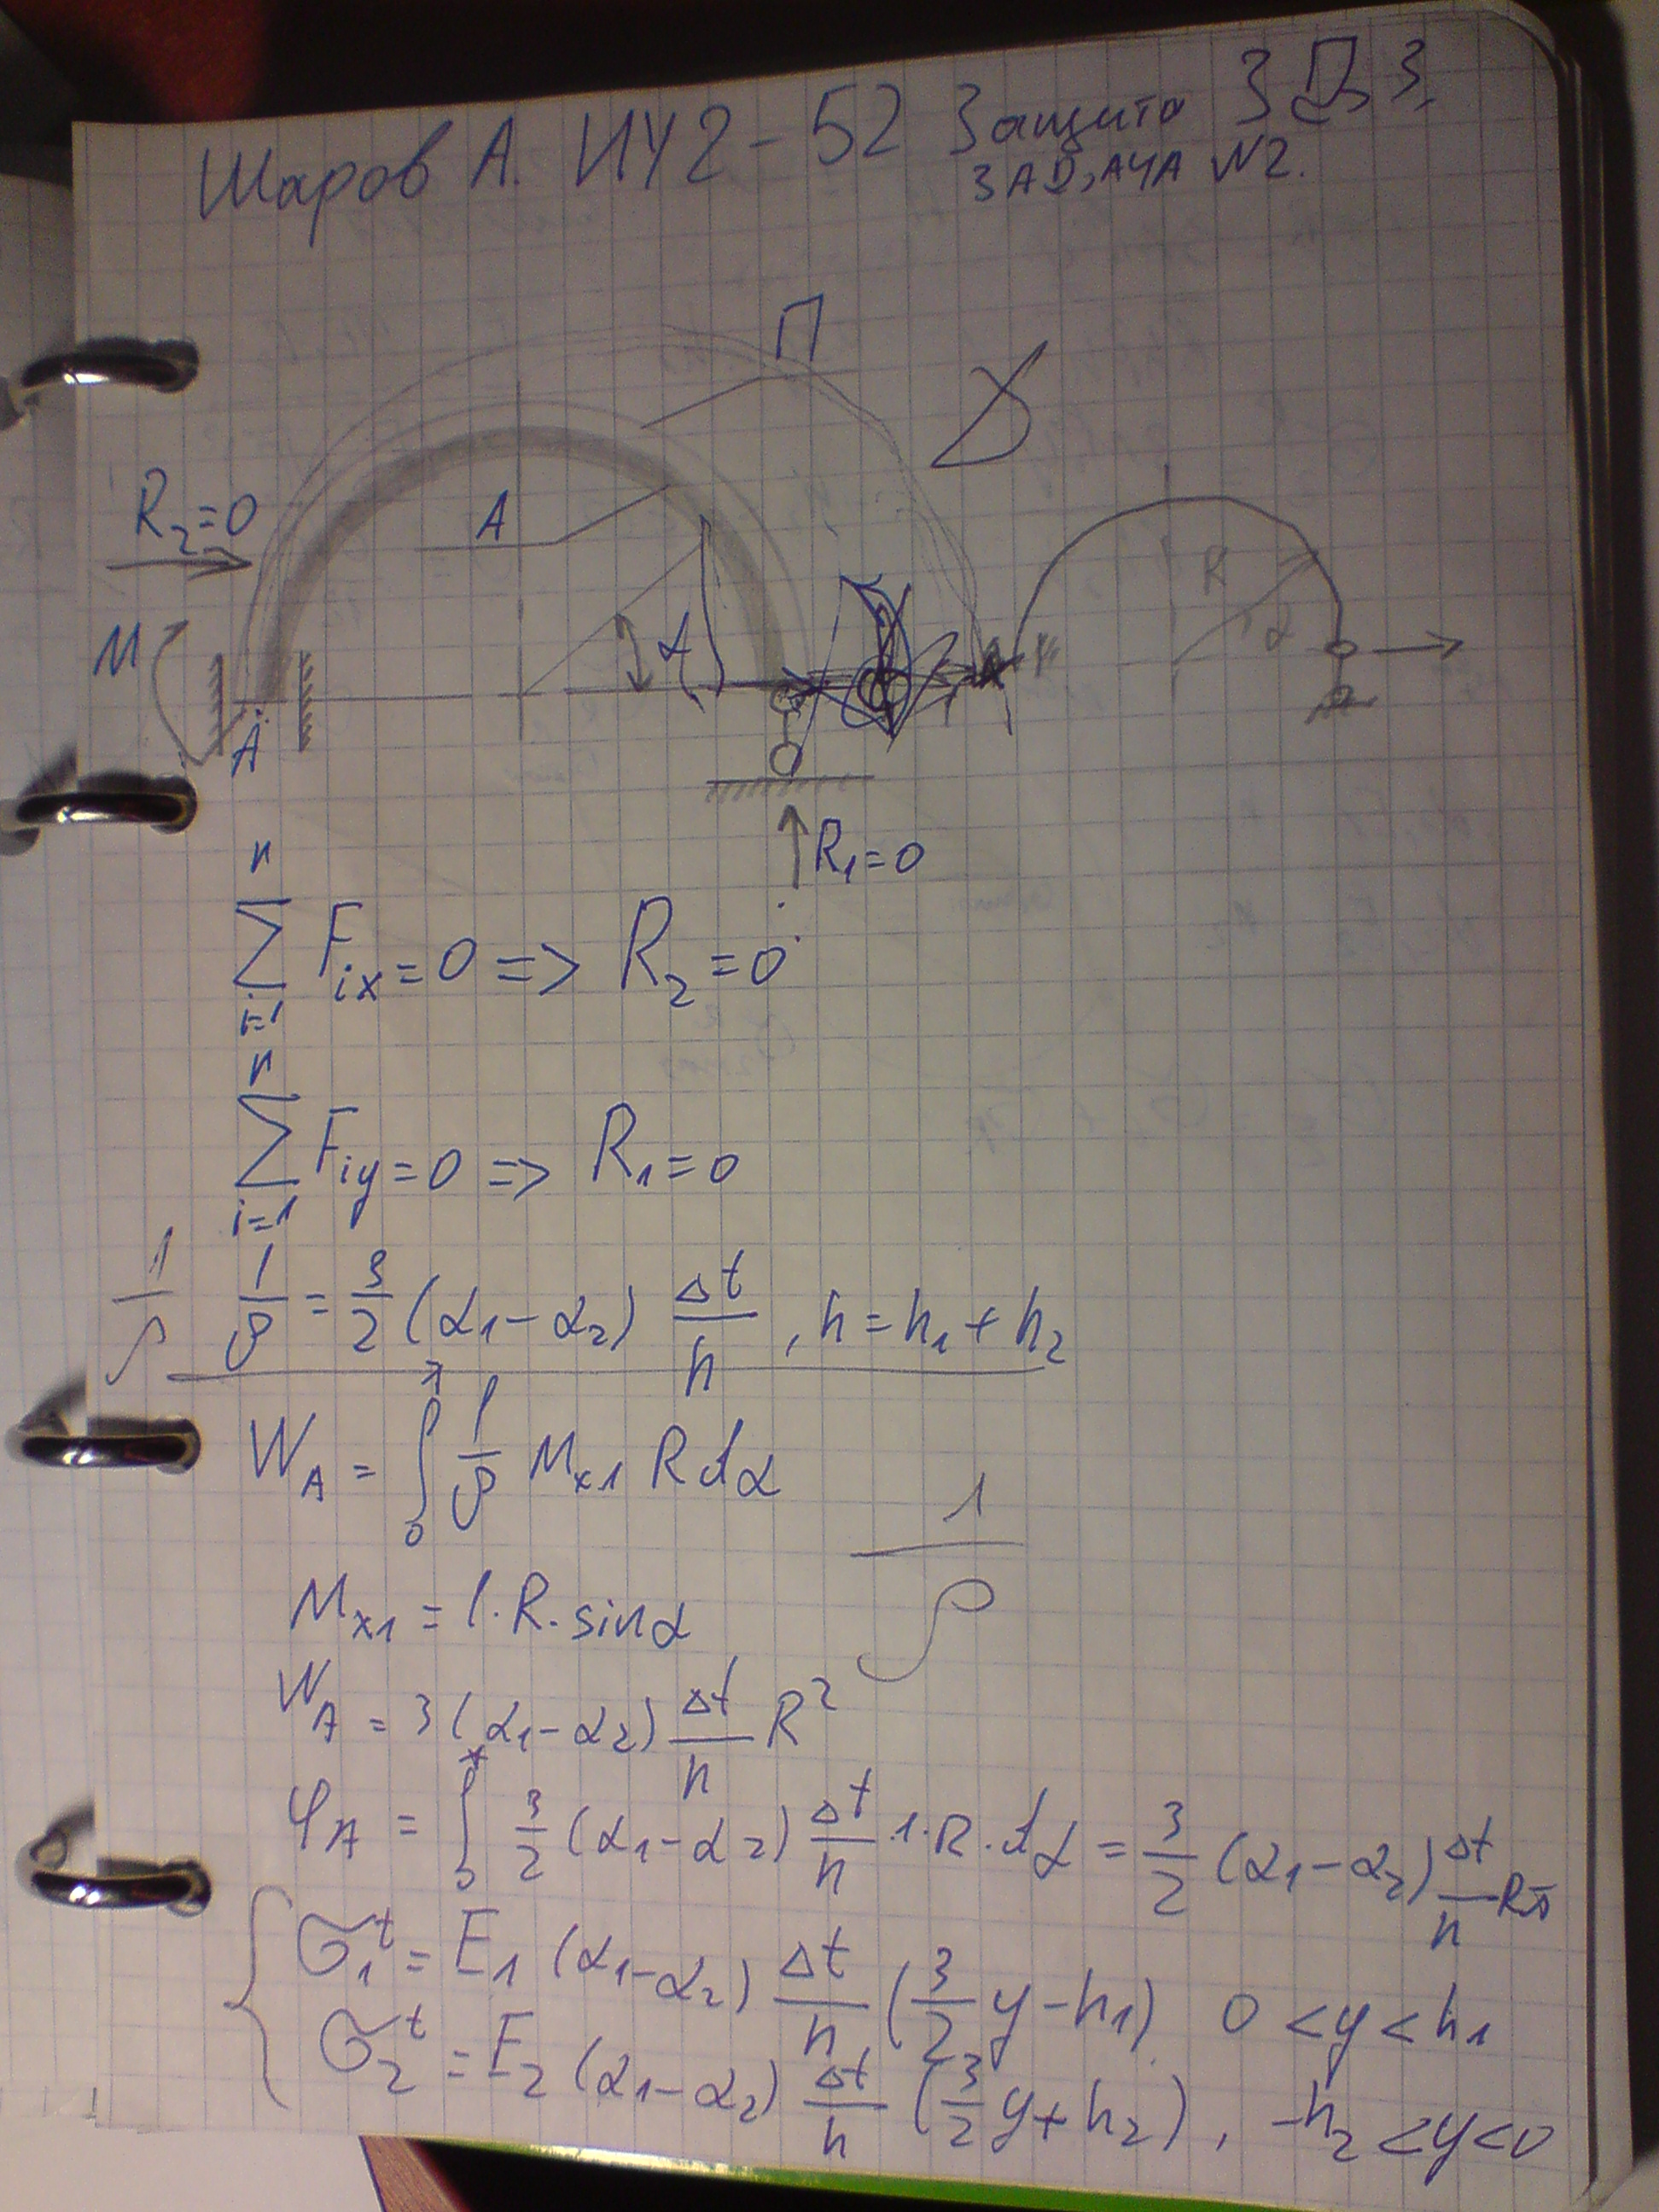 Шаров А. ИУ2-52 Защита 3ДЗ,
ЗАДАЧА №2.
П
R₂=0
A
M
α
R
α
A
R₁=0
∑ⁿᵢ₌₁ Fᵢₓ=0 => R₂=0
∑ⁿᵢ₌₁ Fᵢy=0 => R₁=0
1/ρ 1/ρ = 3/2 (α₁-α₂) Δt/h , h=h₁+h₂
W_A = ∫ 1/ρ Mₓ₁ R dα
1/ρ
Mₓ₁ = 1·R·sinα
W_A = 3(α₁-α₂) Δt/h R²
φ_A = ∫ 3/2 (α₁-α₂) Δt/h ·1·R·dα = 3/2 (α₁-α₂) Δt/h Rπ
σ₁ᵗ = E₁ (α₁-α₂) Δt/h (3/2 y-h₁) 0<y<h₁
σ₂ᵗ = E₂ (α₁-α₂) Δt/h (3/2 y+h₂), -h₂<y<0